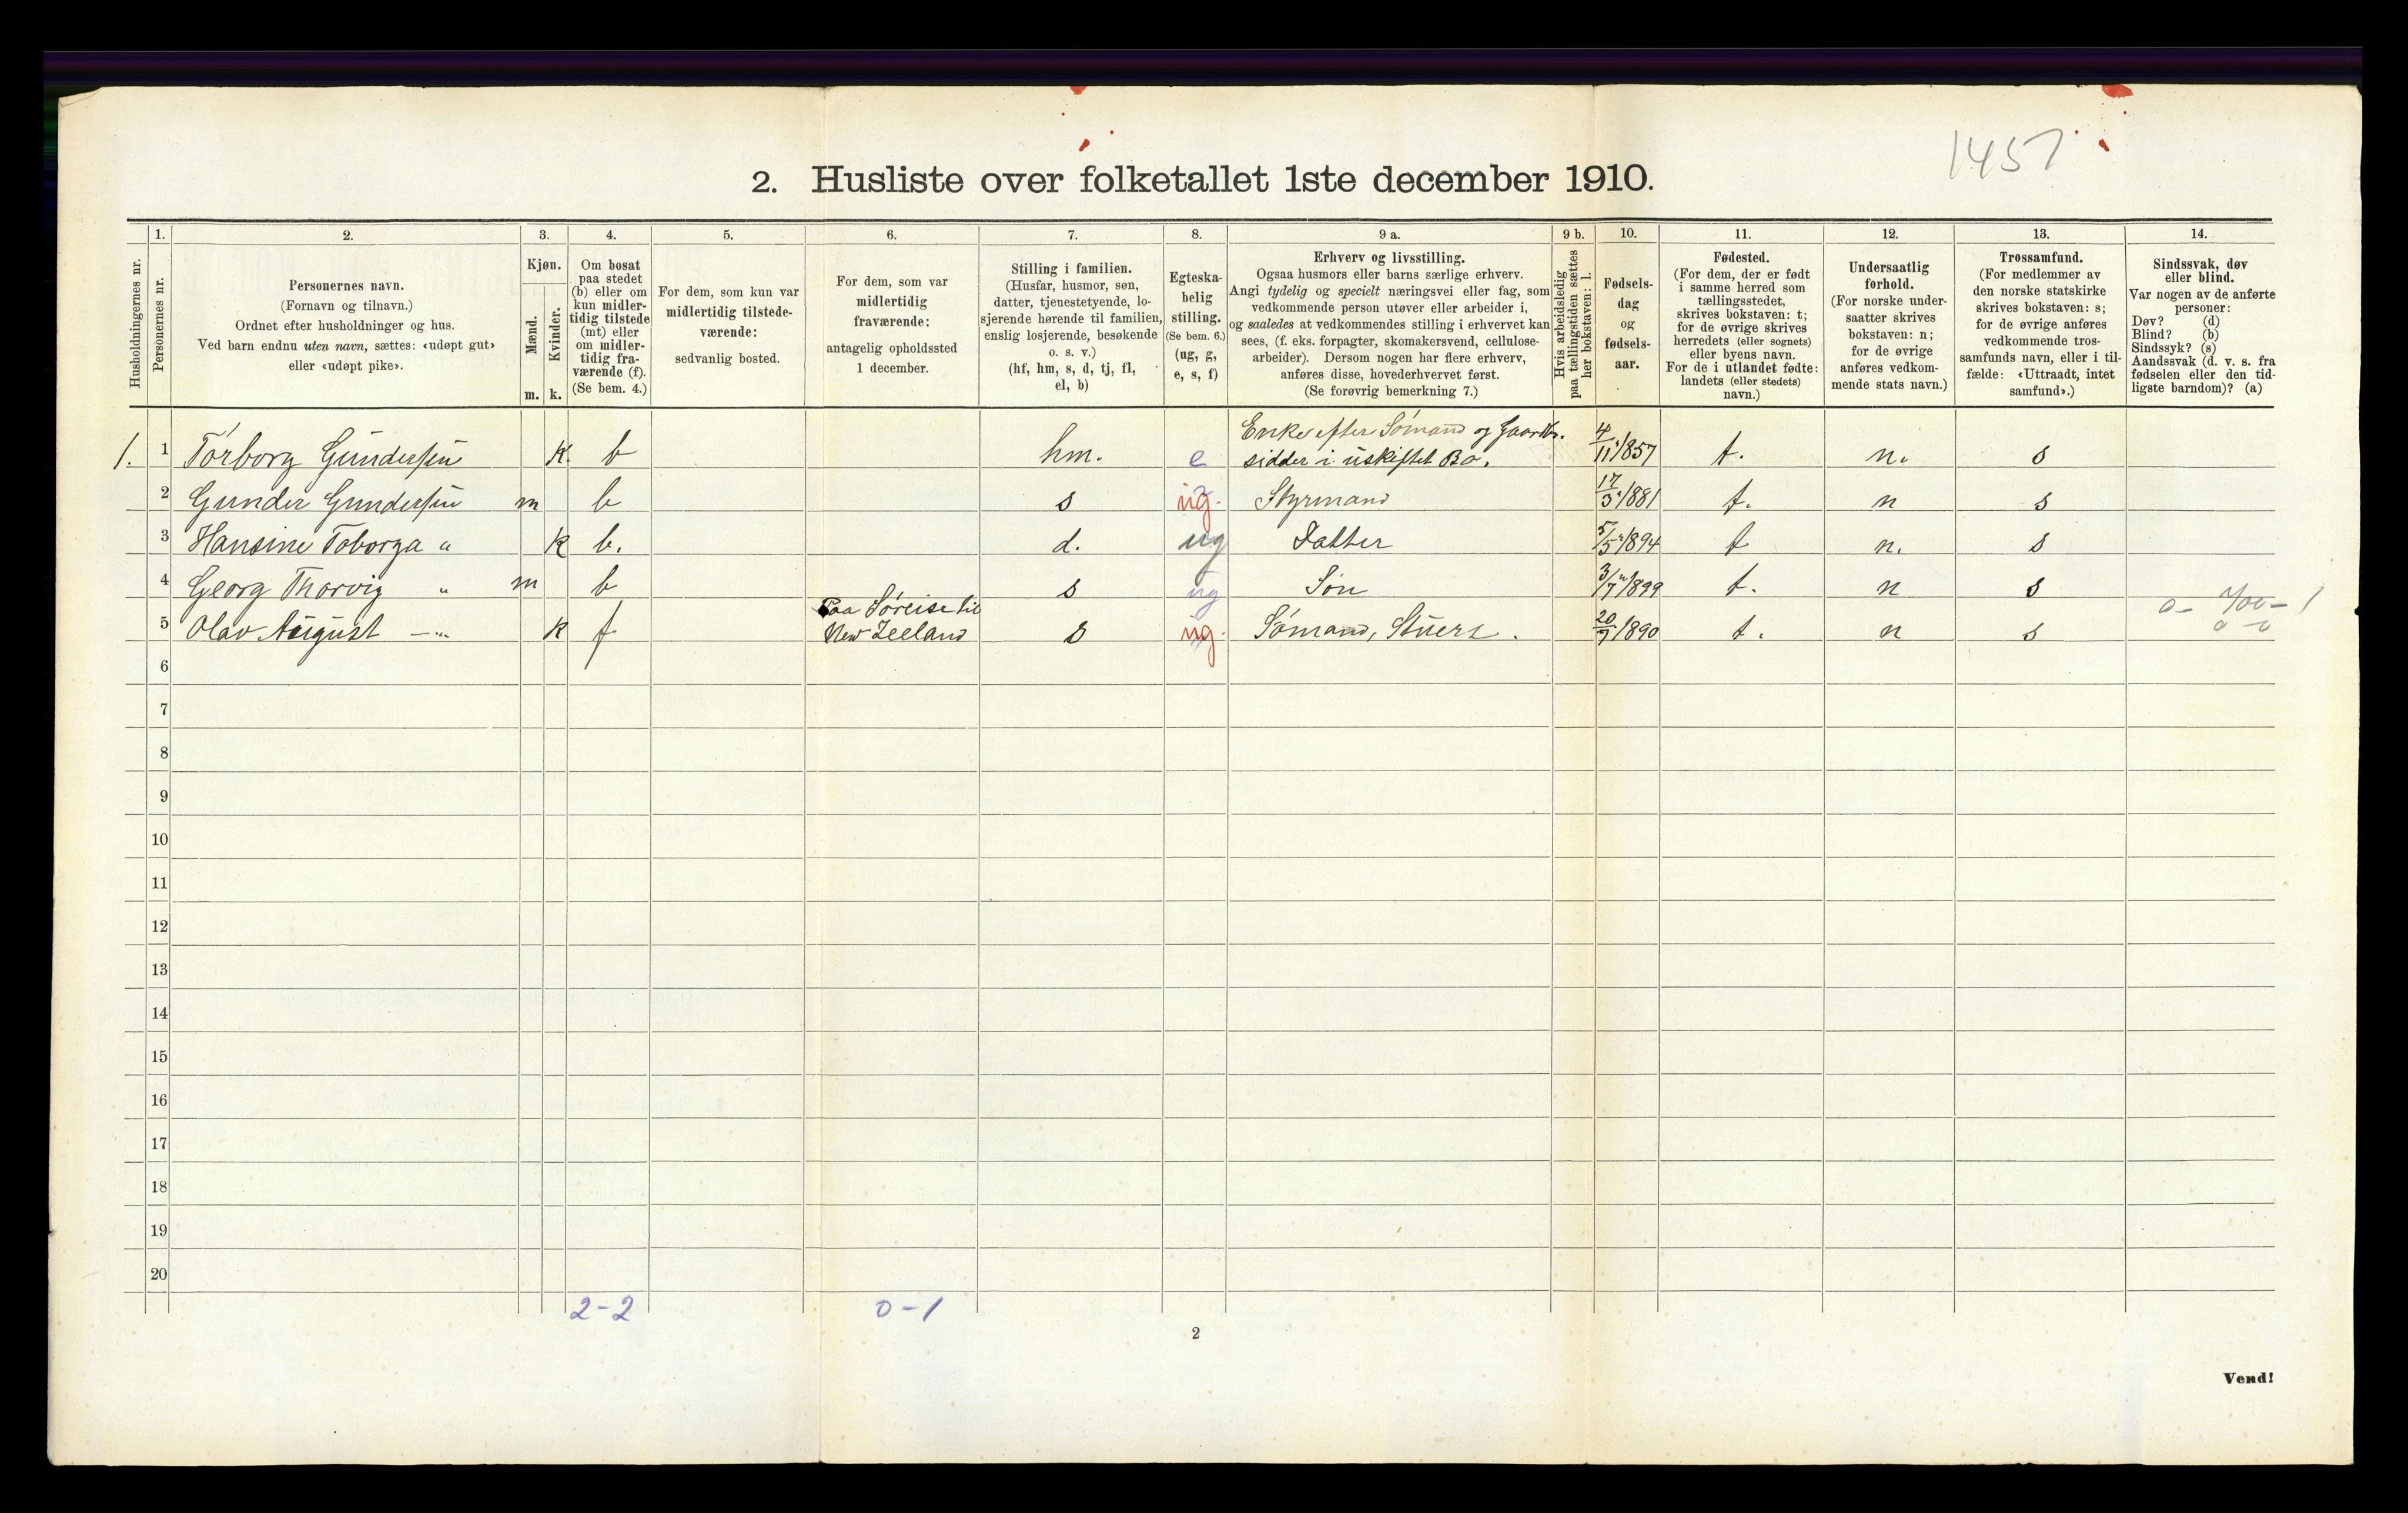 1457
2. Husliste over folketallet 1ste december 1910.
Husholdningernes nr.
1.
Personernes nr.
2.
Personernes navn.
(Fornavn og tilnavn.)
Ordnet efter husholdninger og hus.
Ved barn endnu uten navn, sættes: «udøpt gut»
eller «udøpt pike».
3.
Kjøn.
Mænd.
Kvinder.
m. k.
4.
Om bosat
paa stedet
(b) eller om
kun midler-
tidig tilstede
(mt) eller
om midler-
tidig fra-
værende (f).
(Se bem. 4.)
5.
For dem, som kun var
midlertidig tilstede-
værende:
sedvanlig bosted.
6.
For dem, som var
midlertidig
fraværende:
antagelig opholdssted
1 december.
7.
Stilling i familien.
(Husfar, husmor, søn,
datter, tjenestetyende, lo-
sjerende hørende til familien,
enslig losjerende, besøkende
o. s. v.)
(hf, hm, s, d, tj, fl,
el, b)
8.
Egteska-
belig
stilling.
(Se bem. 6.)
(ug, g,
e, s, f)
9 a.
Erhverv og livsstilling.
Ogsaa husmors eller barns særlige erhverv.
Angi tydelig og specielt næringsvei eller fag, som
vedkommende person utøver eller arbeider i,
og saaledes at vedkommendes stilling i erhvervet kan
sees, (f. eks. forpagter, skomakersvend, cellulose-
arbeider). Dersom nogen har flere erhverv,
anføres disse, hovederhvervet først.
(Se forøvrig bemerkning 7.)
9 b.
Hvis arbeidsledig
paa tællingstiden sættes
her bokstaven: l.
10.
Fødsels-
dag
og
fødsels-
aar.
11.
Fødested.
(For dem, der er født
i samme herred som
tællingsstedet,
skrives bokstaven: t;
for de øvrige skrives
herredets (eller sognets)
eller byens navn.
For de i utlandet fødte:
landets (eller stedets)
navn.)
12.
Undersaatlig
forhold.
(For norske under-
saatter skrives
bokstaven: n;
for de øvrige
anføres vedkom-
mende stats navn.)
13.
Trossamfund.
(For medlemmer av
den norske statskirke
skrives bokstaven: s;
for de øvrige anføres
vedkommende tros-
samfunds navn, eller i til-
fælde: «Uttraadt, intet
samfund».)
14.
Sindssvak, døv
eller blind.
Var nogen av de anførte
personer:
Døv? (d)
Blind? (b)
Sindssyk? (s)
Aandssvak (d. v. s. fra
fødselen eller den tid-
ligste barndom)? (a)
Enke efter Sømand og Gaardbr.
1. 1 Torborg Gundersen K. b hm. e sidder i uskiftet Bo. 4/11 1857 t. n. s
2 Gunder Gundersen m b s ug. Styrmand 17/3 1881 t. n s
3 Hansine Toborga " K b. d. ug Datter 5/5 1894 t n. s
4 Georg Thorvig " m b s ug Søn 3/7 1899 t. n s
Paa Søreise til
5 Olav August —"— k f New Zeeland s ug. Sømand, Stuert. 20/9 1890 t. n s
6
7
8
9
10
11
12
13
14
15
16
17
18
19
20
2-2 0-1
2
Vend!